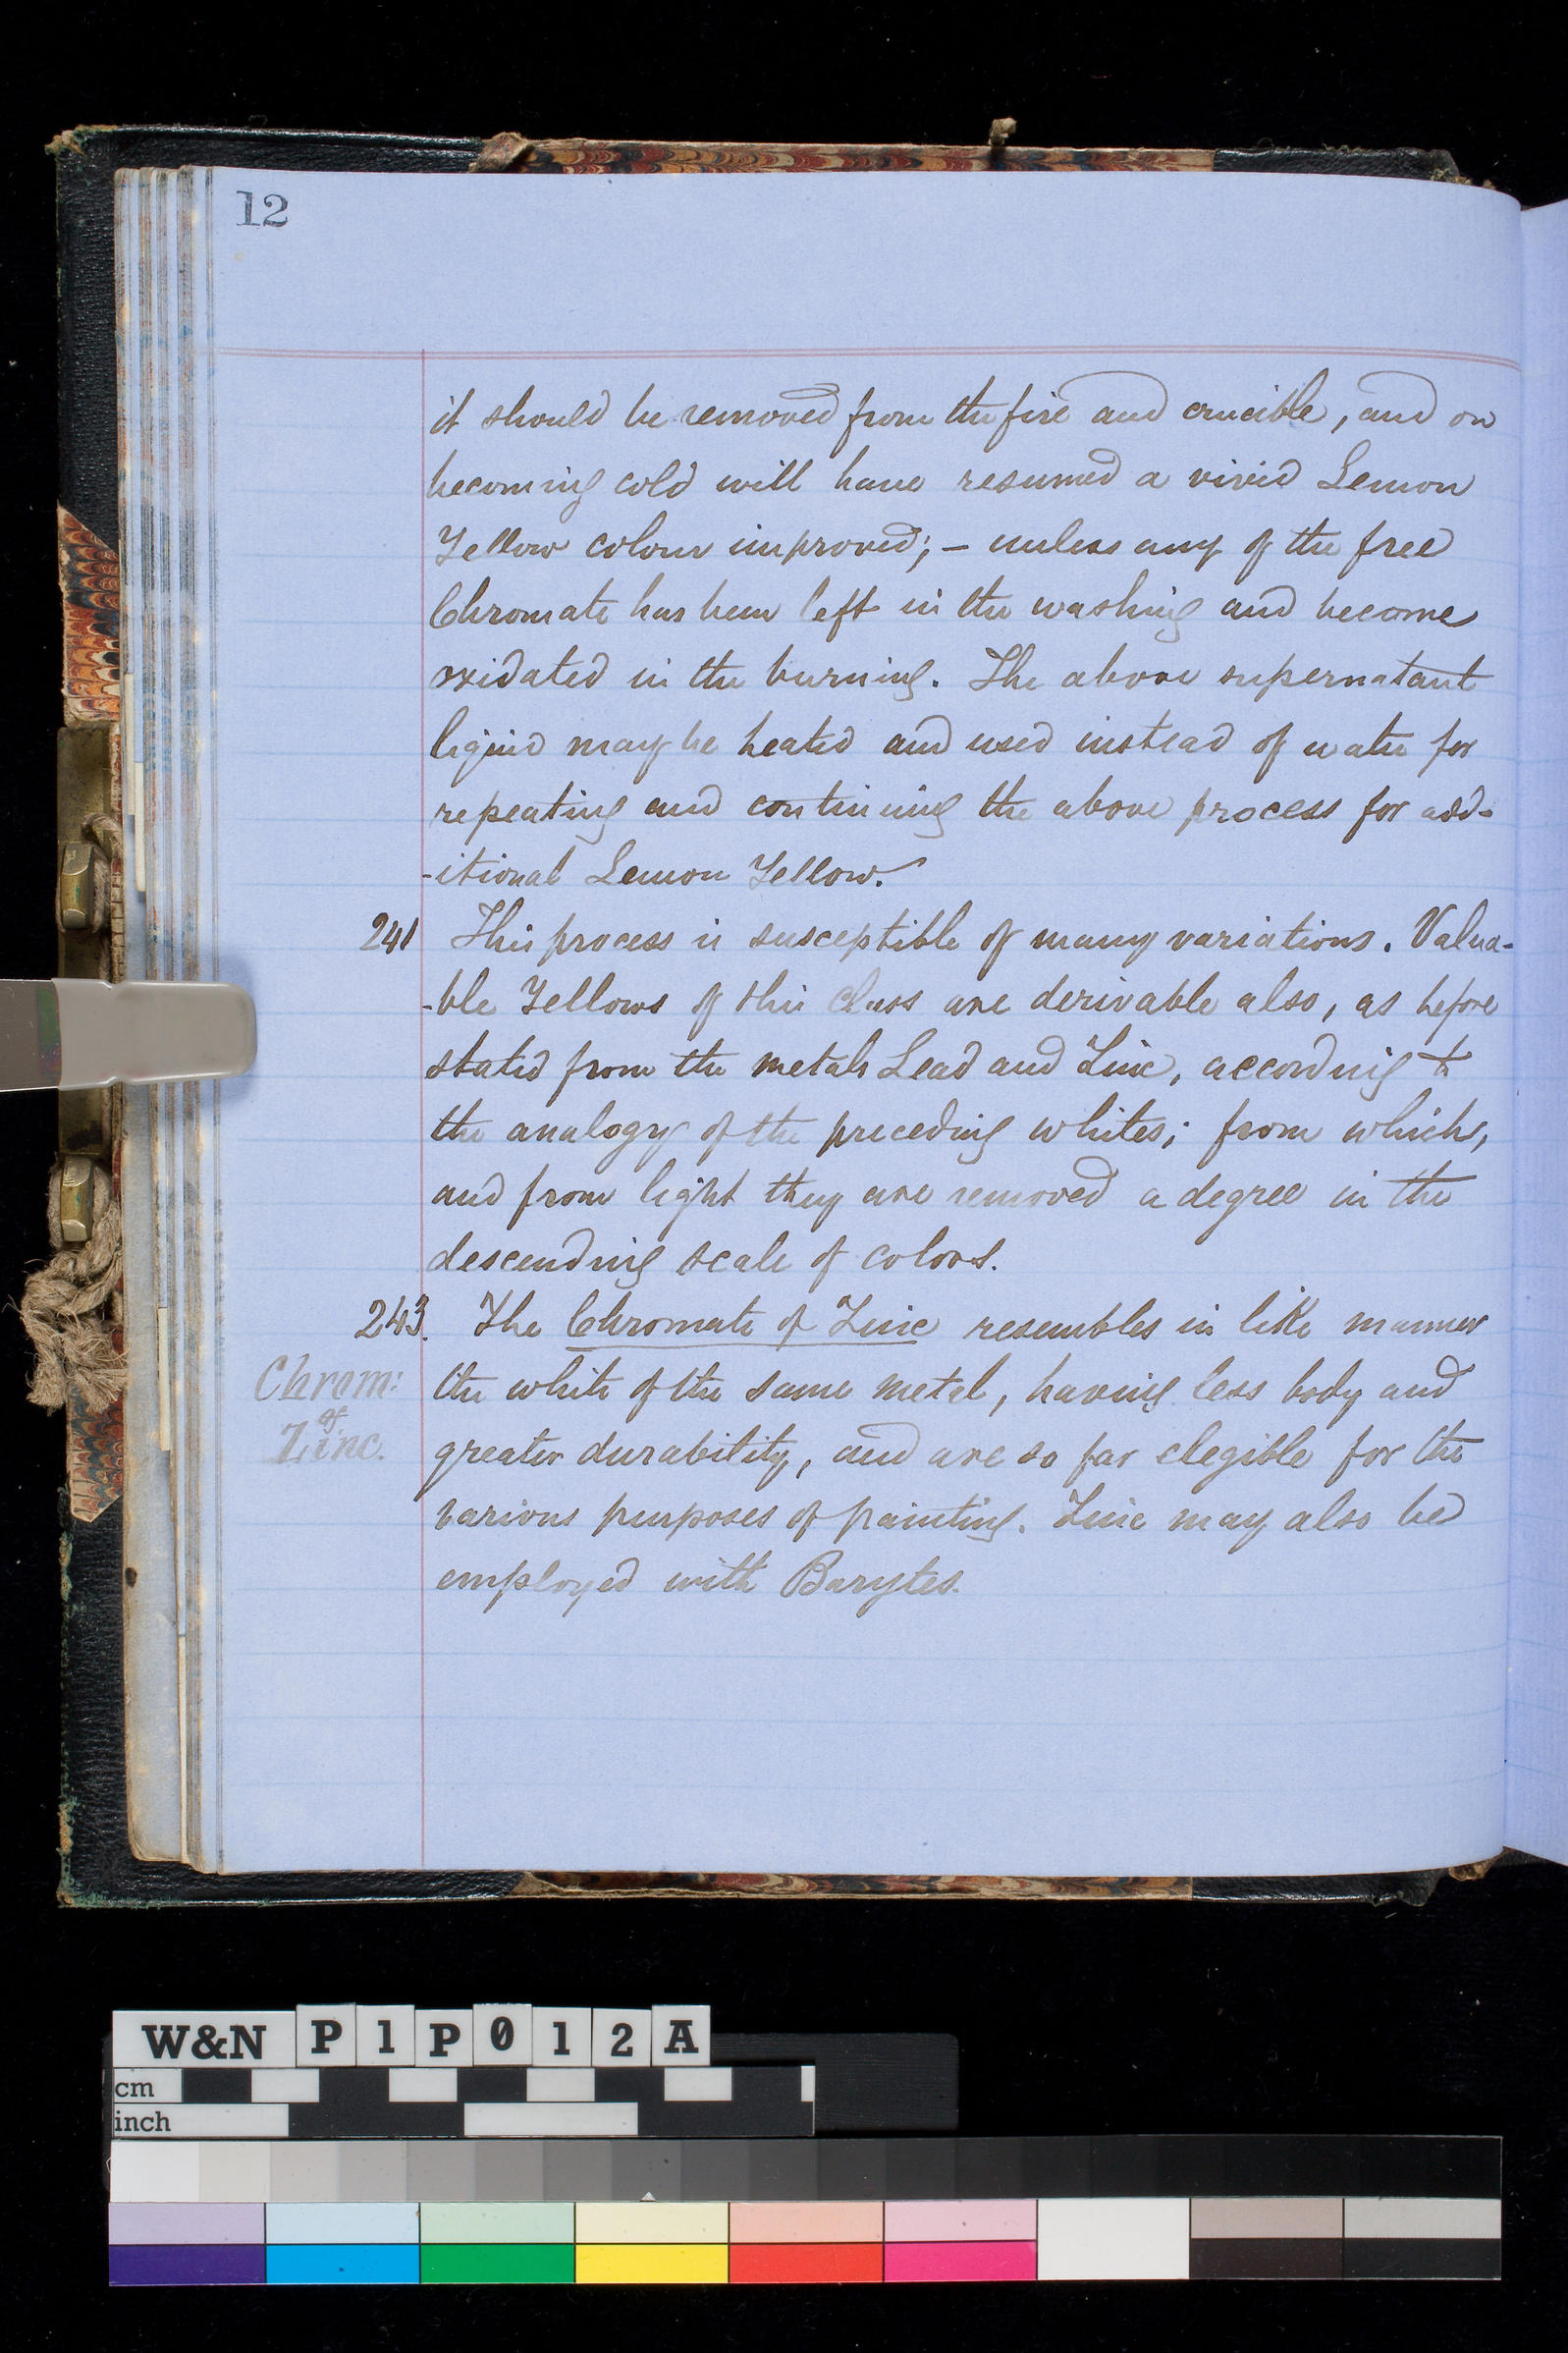 12
it should be removed from the fire and crucible, and on
becoming cold will have resumed a vivid Lemon
Yellow colour improved; - unless any of the free
Chromate has been left in the washing and become
oxidated in the burning. The above supernatant
liquid may be heated and used instead of water for
repeating and continuing the above process for add-
-itional Lemon Yellow.
241 This process is susceptible of many variations. Valua-
-ble Yellows of this class are derivable also, as before
stated from the metals Lead and Zinc, according to
the analogy of the preceding whites; from which,
and from light they are removed a degree in the
descending scale of colors.
243. The Chromate of Zinc resembles in like manner
Chrom: the white of the same metal, having less body and
of
Zinc. greater durability, and are so far elegible for the
various purposes of painting. Zinc may also be
employed with Barytes.
W&N P1P012A
cm
inch